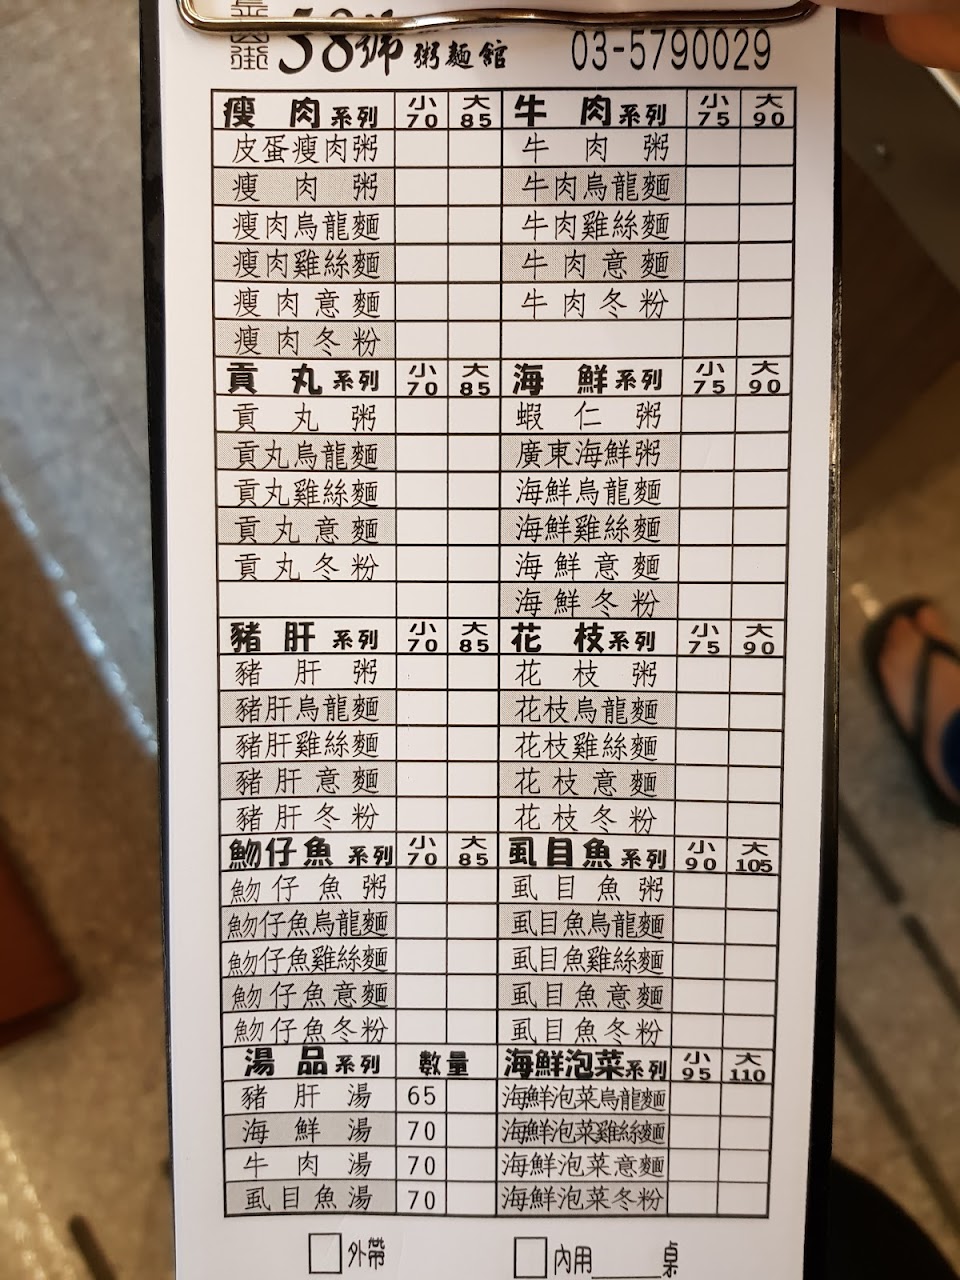 58號 粥麵館 03-5790029
瘦肉系列 小70 大85 牛肉系列 小75 大90
皮蛋瘦肉粥 牛肉粥
瘦肉粥 牛肉烏龍麵
瘦肉烏龍麵 牛肉雞絲麵
瘦肉雞絲麵 牛肉意麵
瘦肉意麵 牛肉冬粉
瘦肉冬粉
貢丸系列 小70 大85 海鮮系列 小75 大90
貢丸粥 蝦仁粥
貢丸烏龍麵 廣東海鮮粥
貢丸雞絲麵 海鮮烏龍麵
貢丸意麵 海鮮雞絲麵
貢丸冬粉 海鮮意麵
海鮮冬粉
豬肝系列 小70 大85 花枝系列 小75 大90
豬肝粥 花枝粥
豬肝烏龍麵 花枝烏龍麵
豬肝雞絲麵 花枝雞絲麵
豬肝意麵 花枝意麵
豬肝冬粉 花枝冬粉
魩仔魚系列 小70 大85 虱目魚系列 小90 大105
魩仔魚粥 虱目魚粥
魩仔魚烏龍麵 虱目魚烏龍麵
魩仔魚雞絲麵 虱目魚雞絲麵
魩仔魚意麵 虱目魚意麵
魩仔魚冬粉 虱目魚冬粉
湯品系列 數量 海鮮泡菜系列 小95 大110
豬肝湯 65 海鮮泡菜烏龍麵
海鮮湯 70 海鮮泡菜雞絲麵
牛肉湯 70 海鮮泡菜意麵
虱目魚湯 70 海鮮泡菜冬粉
□外帶 □內用____桌